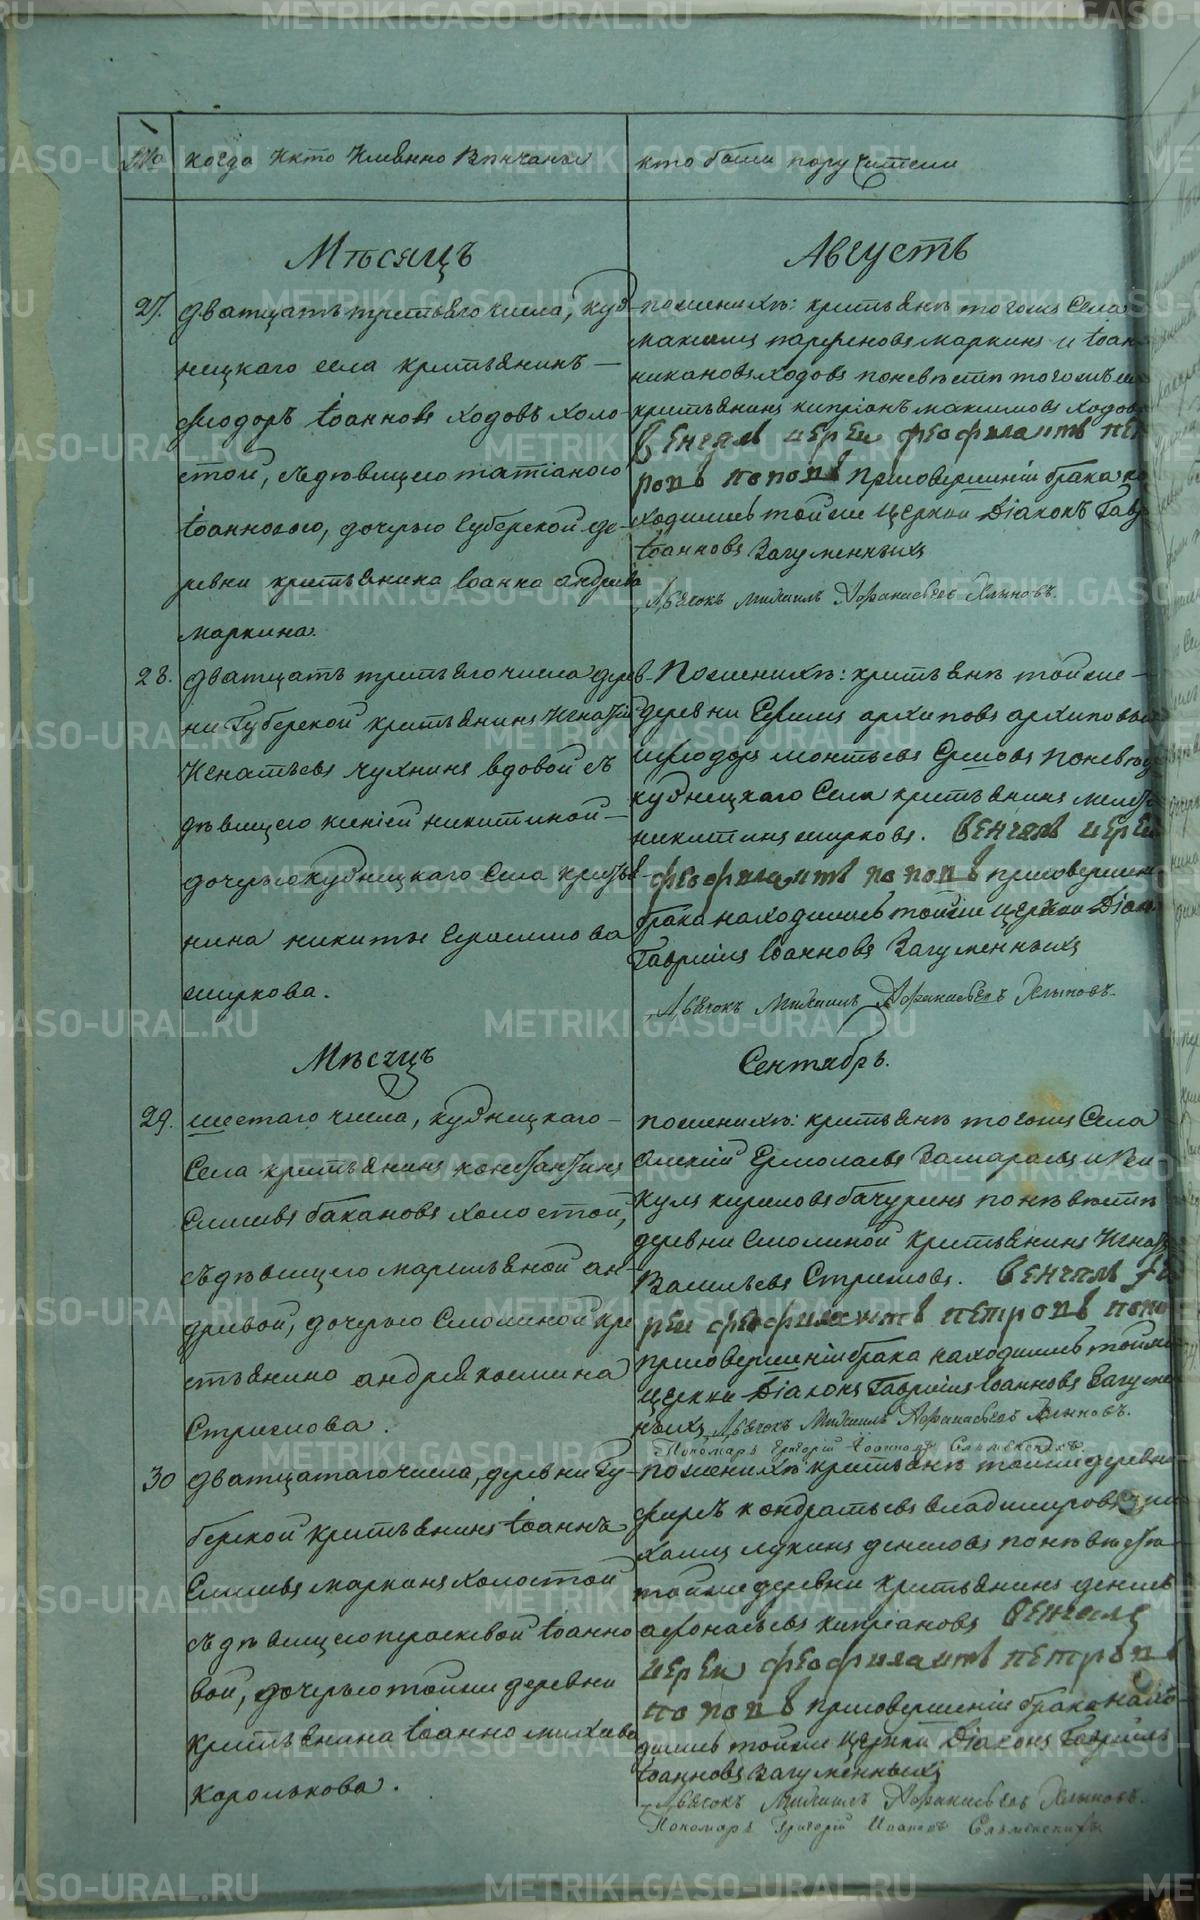 № когда Икто Имѣнно Вѣнчаны
кто были поручители
Мѣсяцъ
Августъ
27. дватцать третьяго числа, куз-
нецкаго села крестьянинъ
Феодоръ Іоанновъ ходовъ холо-
стой, съдѣвицею татіаною
Іоанновою, дочерью Губерской де-
ревни крестьянина Іоанна андреева
маркина.
поженихѣ: крестьянѣ тогожъ Села
максимъ парфеновъ маркинъ и Іоан
никановъ ходовъ поневѣстѣ тогожъ
крестьянинъ кипріанъ максимовъ ходовъ
венчалъ иерей феофилактъ пет
ровъ поповъ присовершеніи брака на
ходились тойже Церкви Діаконъ Гавр
Іоанновъ Загуменныхъ
Дьячокъ Михаилъ Аѳанасьевъ Хлыновъ.
28. дватцать третьяго числа дерев-
ни Губерской крестьянинъ Игнатій
Игнатьевъ чухнинъ вдовой съ
дѣвицею ксеніей никитиной
дочерью кузнецкаго Села крестья
нина никиты Герасимова
ширкова.
Поженихѣ: крестьянѣ тойже
деревни Ефимъ архиповъ архиповыхъ
ифеодоръ леонтьевъ поневѣс
кузнецкаго Села крестьянинъ
никитинъ ширковъ. венчалъ иерей
феофилактъ поповъ присовершен
брака находились тойже церкви Діак
Гавріилъ Іоанновъ Загуменныхъ
Дьячокъ Михаилъ Аѳанасьевъ Хлыновъ.
Мѣсяцъ
Сентябрь.
29. шестаго числа, кузнецкаго
Села крестьянинъ константинъ
бакановъ холостой,
съдѣвицею маремьяной ан-
дреевой, дочерью Смолиной кре
стьянина андрея козмина
Стрижова.
поженихѣ: крестьянѣ тогожъ Села
алексій Ермолаевъ Замараевъ иВи
кулъ кириловъ бачуринъ поневѣстѣ
деревни Смолиной крестьянинъ Игнат
Васильевъ Стрижовъ. венчалъ ие
рей феофилактъ петровъ попо
присовершеніи брака находились тойже
церкви Діаконъ Гавріилъ Іоанновъ Загумен
ныхъ Дьячокъ Михаилъ Аѳанасьевъ Хлыновъ.
Пономарь Григорій Іоанновъ
30 дватцатаго числа, деревни Гу-
берской крестьянинъ Іоаннъ
маркинъ холостой
съдѣвицею параскевой Іоанно
вой, дочерью тойже деревни
крестьянина Іоанна михаева
королькова.
поженихѣ крестьянѣ тойже деревни
фирсъ кондратьевъ владимировъ
лукинъ денисовъ поневѣстѣ
тойже деревни крестьянинъ денисъ
афонасьевъ кипріановъ венчалъ
иерей феофилактъ петровъ
поповъ присовершеніи брака нахо-
дились тойже церкви Діаконъ Гавріилъ
Іоанновъ Загуменныхъ
Дьячокъ Михаилъ Аѳанасьевъ Хлыновъ.
Пономарь Григорій Іоанновъ
METRIKI.GASO-URAL.RU